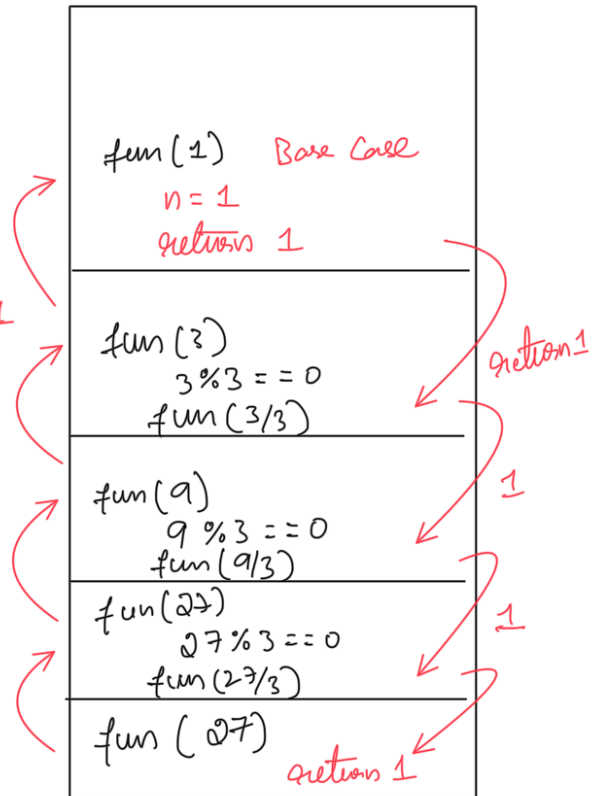 fun(1) Base Case
n = 1
return 1
1
fun(3)
3%3 == 0
fun(3/3)
return 1
fun(9)
9%3 == 0
fun(9/3)
1
fun(27)
27%3 == 0
fun(27/3)
1
fun(27)
return 1